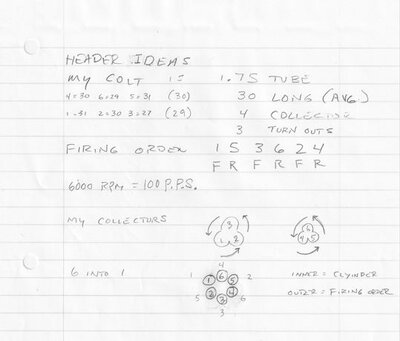 HEADER IDEAS
MY COLT IS 1.75 TUBE
4=30 6=29 5=31 (30) 30 LONG (AVG)
1=31 2=30 3=27 (29) 4 COLLECTOR
3 TURN OUTS
FIRING ORDER 1 5 3 6 2 4
F R F R F R
6000 RPM = 100 P.P.S.
MY COLLECTORS 3 1 2 6 4 5
6 INTO 1
4
1 1 6 5 2
5 2 3 4 6
3
INNER = CLYINDER
OUTER = FIRING ORDER